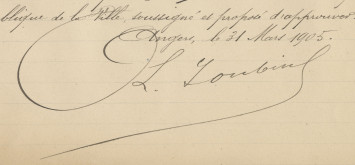 blique de la Ville, soussigné et proposé d'approuver.
Angers, le 31 Mars 1905.
L. Toubin